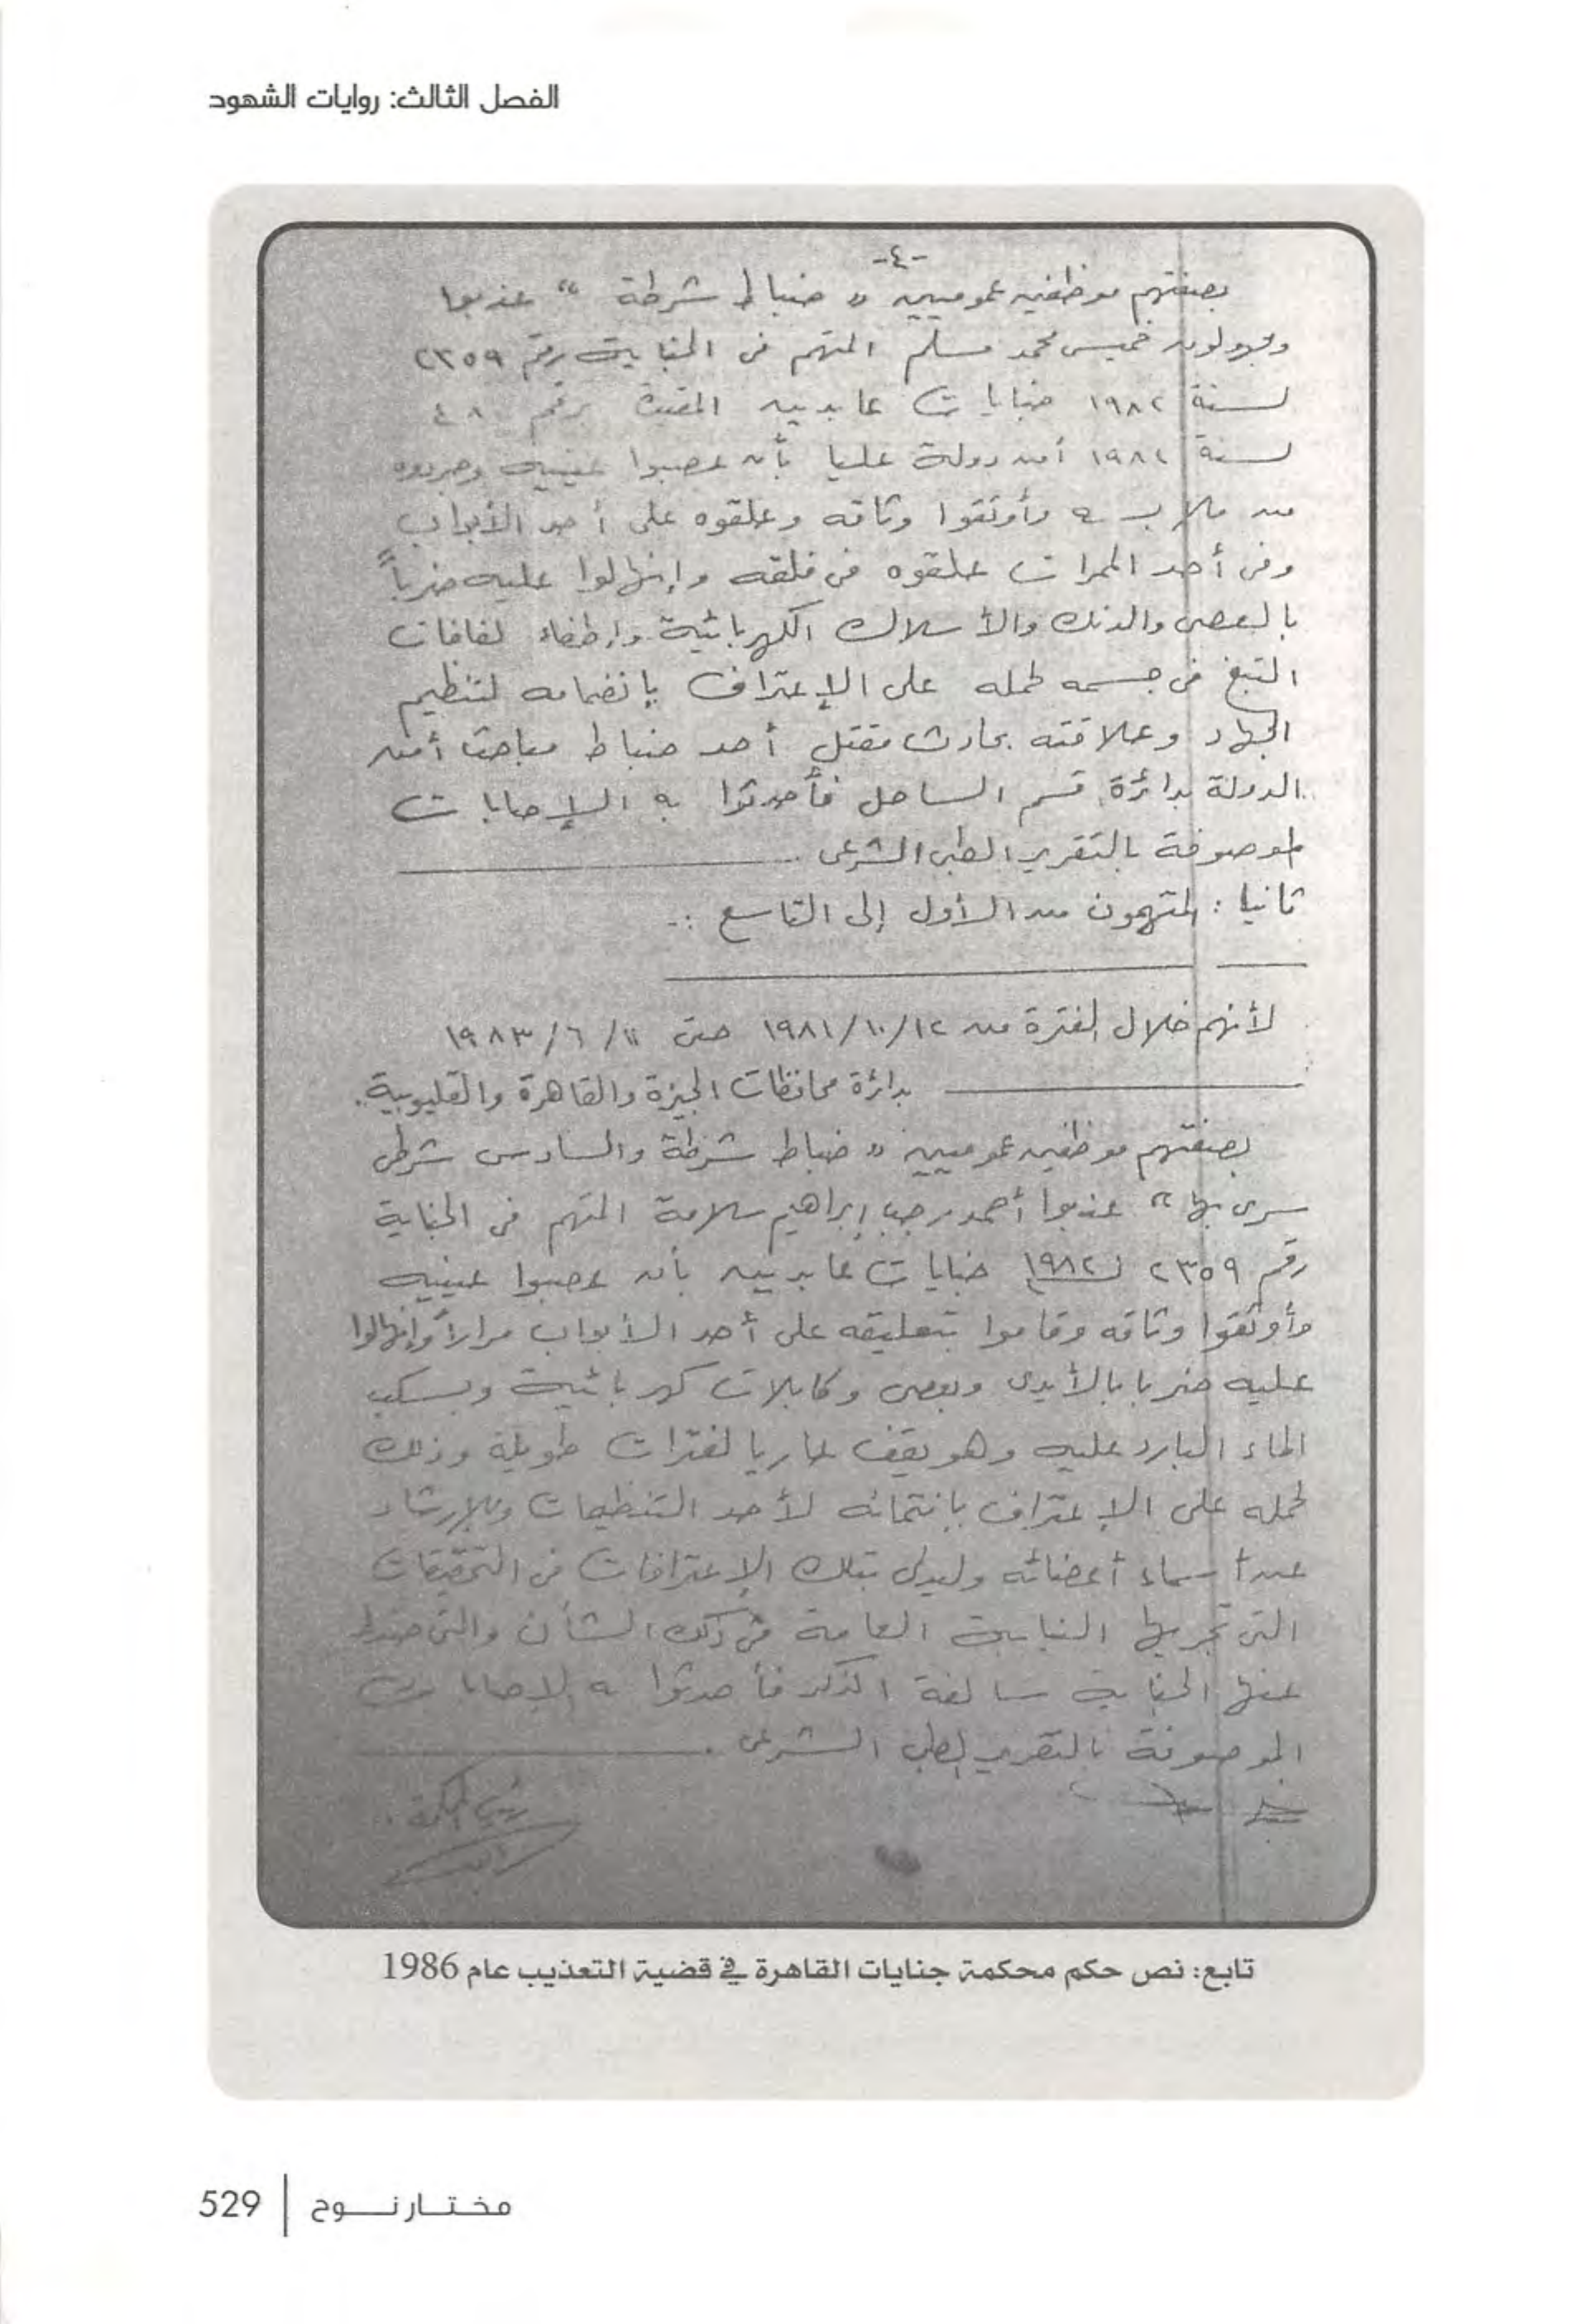 الفصل الثالث: روايات الشهود
-٤-
بصفتهم موظفين عموميين « ضباط شرطة » عذبوا
ومجهولون خميس محمد مسلم المتهم فى الجناية رقم ٢٣٥٩
لسنة ١٩٨٢ جنايات عابدين المقيدة برقم ٤٨
لسنة ١٩٨٢ أمن دولة عليا بأن عصبوا عينيه وجردوه
من ملابسه وأوثقوا وثاقه وعلقوه على أحد الأبواب
وفى أحد الممرات علقوه فى فلقه وإنهالوا عليه ضرباً
بالعصى والدنك والأسلاك الكهربائية وإطفاء لفافات
التبغ فى جسمه لحمله على الإعتراف بإنضمامه لتنظيم
الجهاد وعلاقته بحادث مقتل أحد ضباط مباحث أمن
الدولة بدائرة قسم الساحل فأحدثوا به الإصابات
الموصوفة بالتقرير الطبى الشرعى .
ثانيا : المتهمون من الأول إلى التاسع :-
لأنهم خلال الفترة من ١٩٨١/١٠/١٢ حتى ١٩٨٣/٦/١١
بدائرة محافظات الجيزة والقاهرة والقليوبية .
بصفتهم موظفين عموميين « ضباط شرطة والسادس شرطى
سرى بها » عذبوا أحمد رجب إبراهيم سلامة المتهم فى الجناية
رقم ٢٣٥٩ لسنة ١٩٨٢ جنايات عابدين بأن عصبوا عينيه
وأوثقوا وثاقه وقاموا بتعليقه على أحد الأبواب مراراً وإنهالوا
عليه ضربا بالأيدى وبعصى وكابلات كهربائية وبسكب
الماء البارد عليه وهو يقف عاريا لفترات طويلة وذلك
لحمله على الإعتراف بإنتمائه لأحد التنظيمات وللإرشاد
عن أسماء أعضائه وليدلى بتلك الإعترافات فى التحقيقات
التى تجريها النيابة العامة فى ذلك الشأن والتى ضبط
عنها الجناية سالفة الذكر فأحدثوا به الإصابات
الموصوفة بالتقرير الطبى الشرعى .
رئيس المحكمة .
تابع: نص حكم محكمة جنايات القاهرة في قضية التعذيب عام 1986
مختار نوح | 529